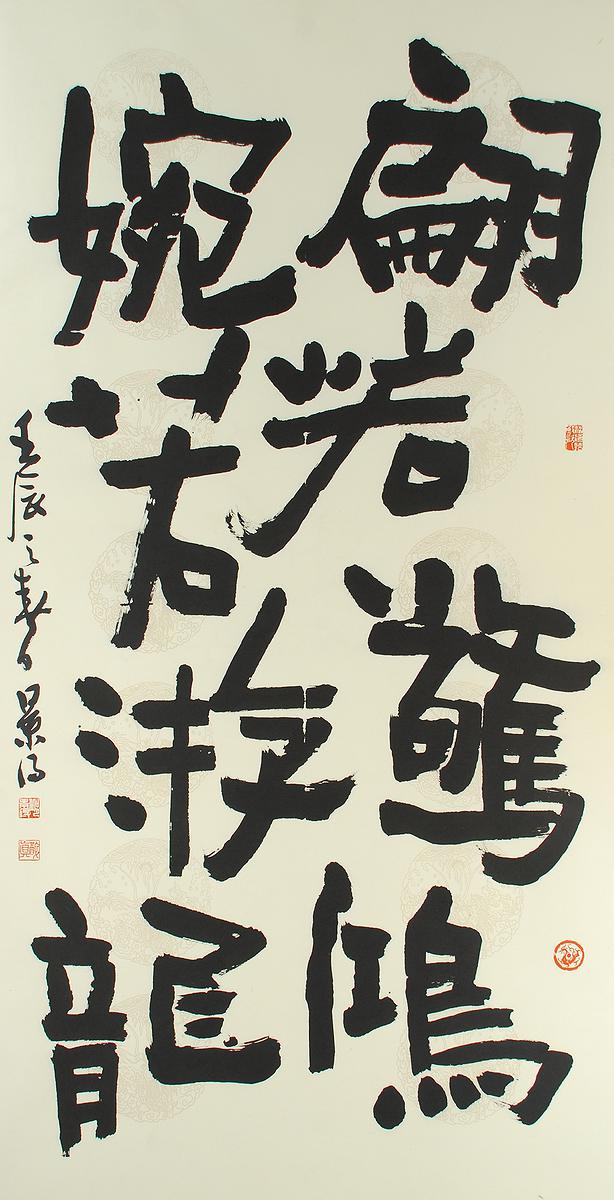 翩若驚鴻
婉若游龍
壬辰之春日景